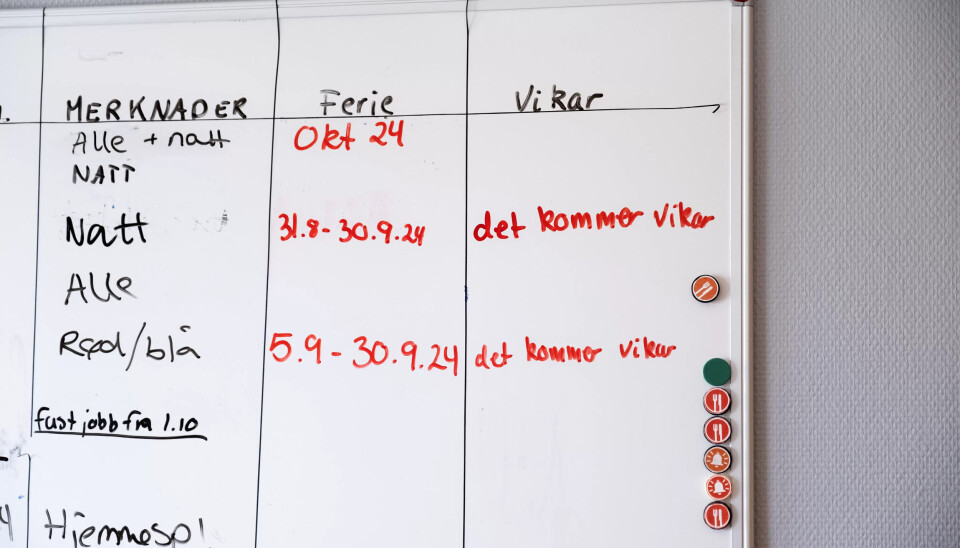 MERKNADER Ferie Vikar
Alle + natt Okt 24
NATT
Natt 31.8 - 30.9.24 det kommer vikar
Alle
Rød/blå 5.9 - 30.9.24 det kommer vikar
fast jobb fra 1.10
Hjemmespl